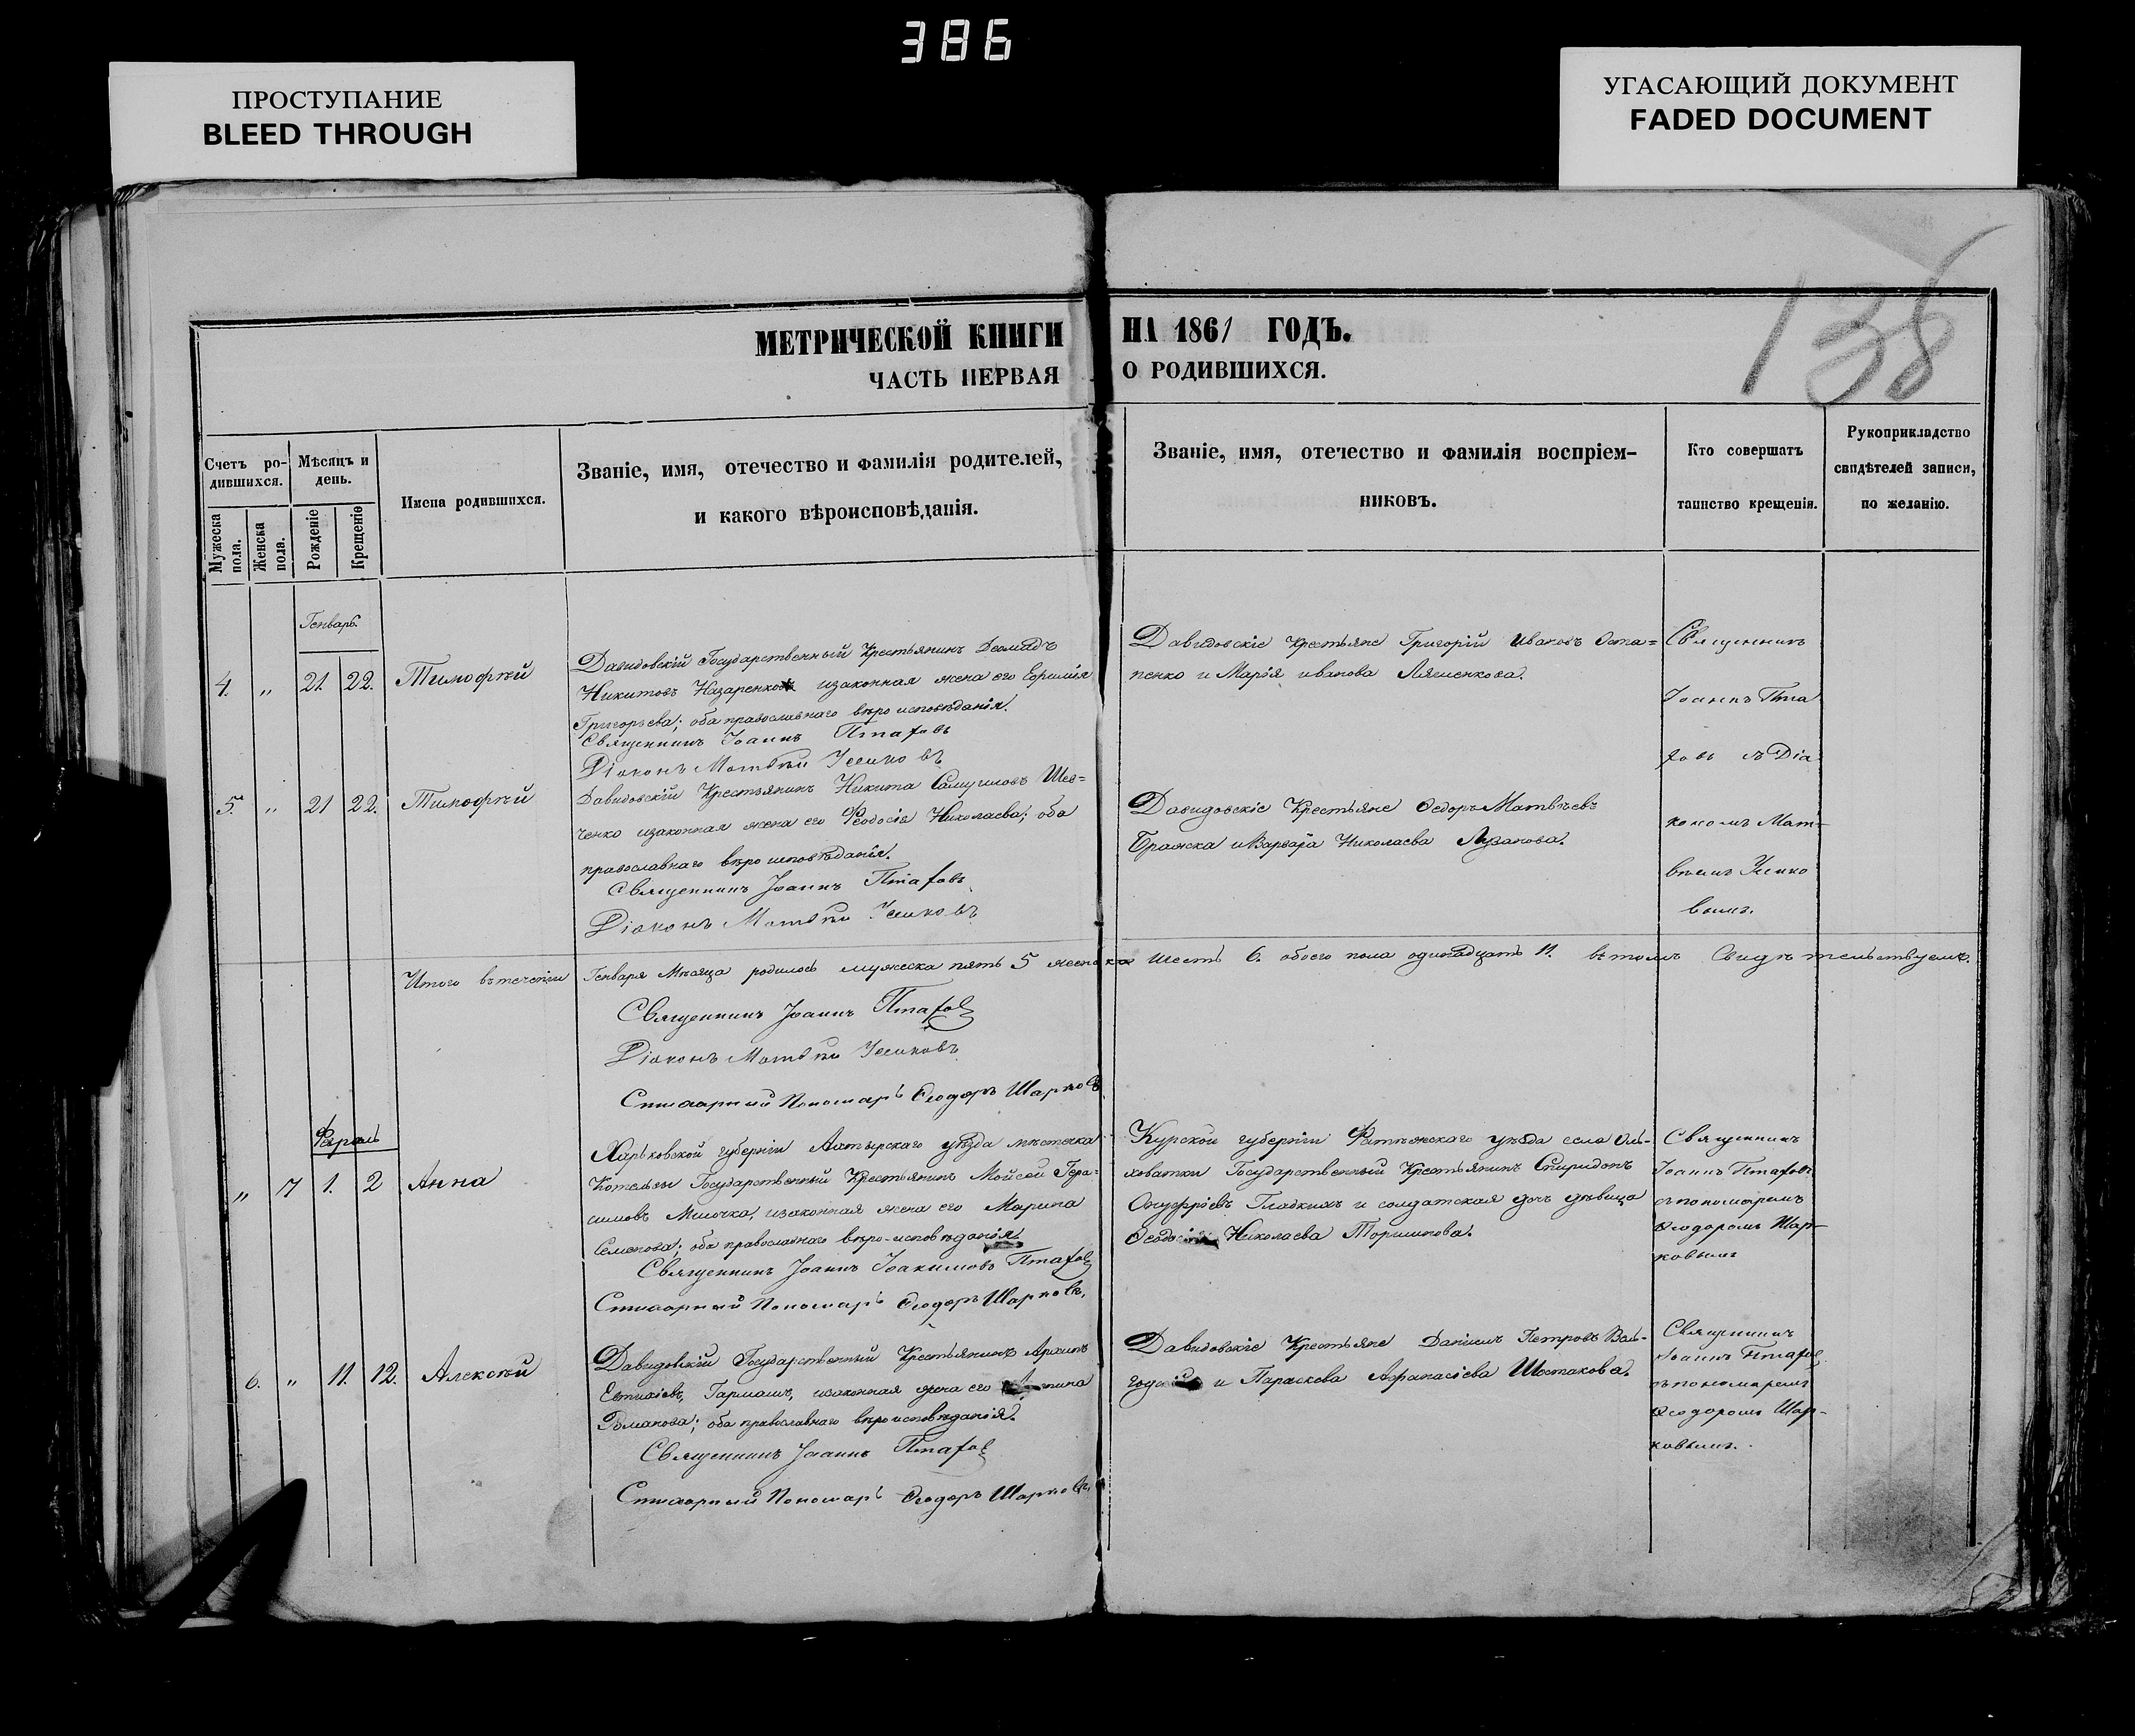 386
ПРОСТУПАНИЕ
BLEED THROUGH
УГАСАЮЩИЙ ДОКУМЕНТ
FADED DOCUMENT
138
МЕТРИЧЕСКОЙ КНИГИ НА 1861 ГОДЪ.
ЧАСТЬ ПЕРВАЯ О РОДИВШИХСЯ.
Счетъ ро-
дившихся.
Мужеска пола.
Женска пола.
Мѣсяцъ и
день.
Рожденіе
Крещеніе
Имена родившихся.
Званіе, имя, отечество и фамилія родителей,
и какого вѣроисповѣданія.
Званіе, имя, отечество и фамилія воспріем-
никовъ.
Кто совершатъ
таинство крещенія.
Рукоприкладство
свидѣтелей записи,
по желанію.
Генварь.
4. „ 21. 22. Тимофѣй
Давидовскій Государственный Крестьянинъ
Никитовъ Назаренко изаконная жена его Ефимія
Григорьева; оба православнаго вѣроисповѣданія.
Священникъ Іоаннъ Птаховъ
Діаконъ Матвѣй
Давидовскіе Крестьяне Григорій Ивановъ Оста=
пенко и Марія иванова Ляшенкова.
Священникъ
Іоаннъ Пта
ховъ съ Діа
кономъ Мат-
вѣемъ
вымъ.
5. „ 21 22. Тимофѣй
Давидовскій Крестьянинъ Никита Самуиловъ Шев=
ченко изаконная жена его Феодосія Николаева; оба
православнаго вѣроисповѣданія.
Священникъ Іоаннъ Птаховъ
Діаконъ Матвѣй
Давидовскіе Крестьяне Ѳедоръ Матвѣевъ
Бражка и Варвара Николаева
Итого втеченіи Генваря Мѣсяца родилось мужеска пять 5 женска шесть 6. обоего пола одинадцать 11. вътомъ Свидѣтельствуемъ.
Священникъ Іоаннъ Птаховъ
Діаконъ Матвѣй
Стихарный Пономарь Ѳеодоръ Шарковъ
„ 7 1. 2 Анна
Харьковской губерніи Ахтырскаго уѣзда мѣстечка
Котельвы Государственный Крестьянинъ Мойсей Гера=
симовъ изаконная жена его Марина
Семенова; оба православнаго вѣро-исповѣданія.
Священникъ Іоаннъ Іоакимовъ Птаховъ
Стихарный Пономарь Ѳеодоръ Шарковъ.
Курской губерніи Фатежскаго уѣзда села Оль-
ховатки Государственный Крестьянинъ Спиридонъ
Онуфріевъ Гладкихъ и солдатская дочь дѣвица
Николаева
Священникъ
Іоаннъ Птаховъ
съ пономаремъ
Ѳеодоромъ Шар-
ковымъ
6. „ 11. 12. Алексѣй
Давидовскій Государственный Крестьянинъ
Евтихіевъ, изаконная жена его
Романова; оба православнаго вѣроисповѣданія.
Священникъ Іоаннъ Птаховъ
Стихарный Пономарь Ѳеодоръ Шарковъ.
Давидовскіе Крестьяне Даніилъ Петровъ
и Параскева Афанасіева Шостакова.
Священникъ
Іоаннъ Птаховъ
съ пономаремъ
Ѳеодоромъ Шар-
ковымъ.